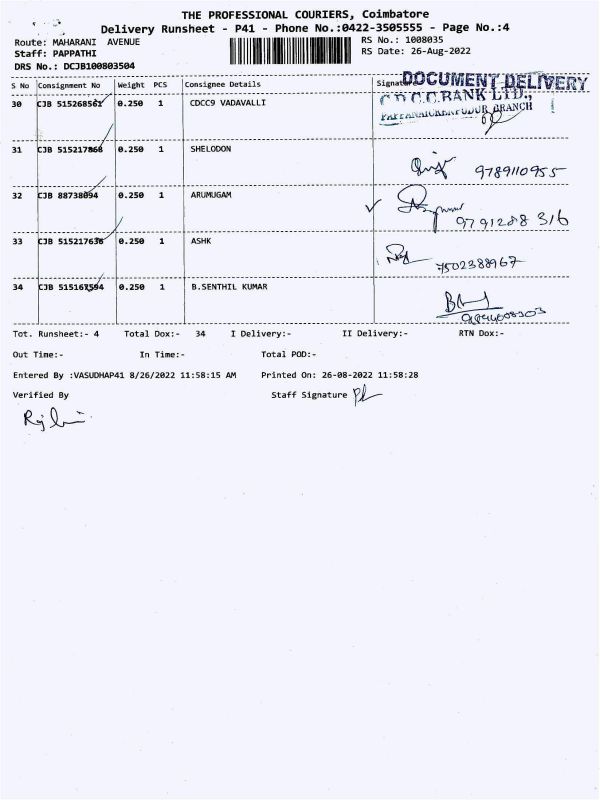 THE PROFESSIONAL COURIERS, Coimbatore
Delivery Runsheet - P41 - Phone No.:0422-3505555 - Page No.:4
Route: MAHARANI AVENUE RS No.: 1008035
Staff: PAPPATHI RS Date: 26-Aug-2022
DRS No.: DCJB100803504
S No Consignment No Weight PCS Consignee Details Signature
DOCUMENT DELIVERY
30 CJB 515268561 0.250 1 CDCC9 VADAVALLI
C.D.C.C.BANK LTD.,
BRANCH
31 CJB 515217868 0.250 1 SHELODON
9789110955
32 CJB 88738094 0.250 1 ARUMUGAM
9791288 316
33 CJB 515217636 0.250 1 ASHK
7502388967
34 CJB 515167594 0.250 1 B.SENTHIL KUMAR
Tot. Runsheet:- 4 Total Dox:- 34 I Delivery:- II Delivery:- RTN Dox:-
Out Time:- In Time:- Total POD:-
Entered By :VASUDHAP41 8/26/2022 11:58:15 AM Printed On: 26-08-2022 11:58:28
Verified By Staff Signature